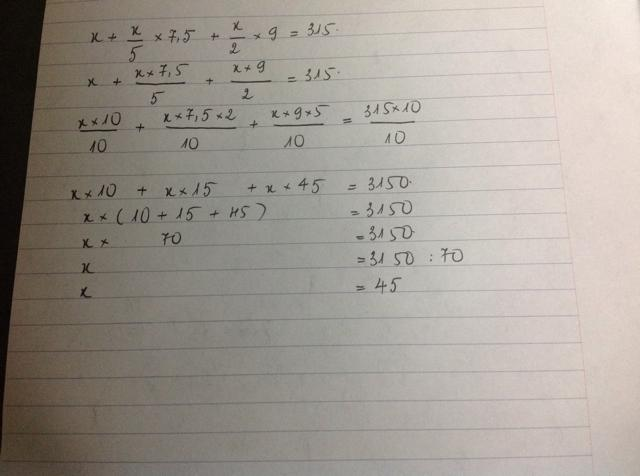 x + x/5 × 7,5 + x/2 × 9 = 315.
x + x×7,5/5 + x×9/2 = 315.
x×10/10 + x×7,5×2/10 + x×9×5/10 = 315×10/10
x×10 + x×15 + x×45 = 3150.
x×(10+15+45) = 3150
x× 70 = 3150
x = 3150 : 70
x = 45